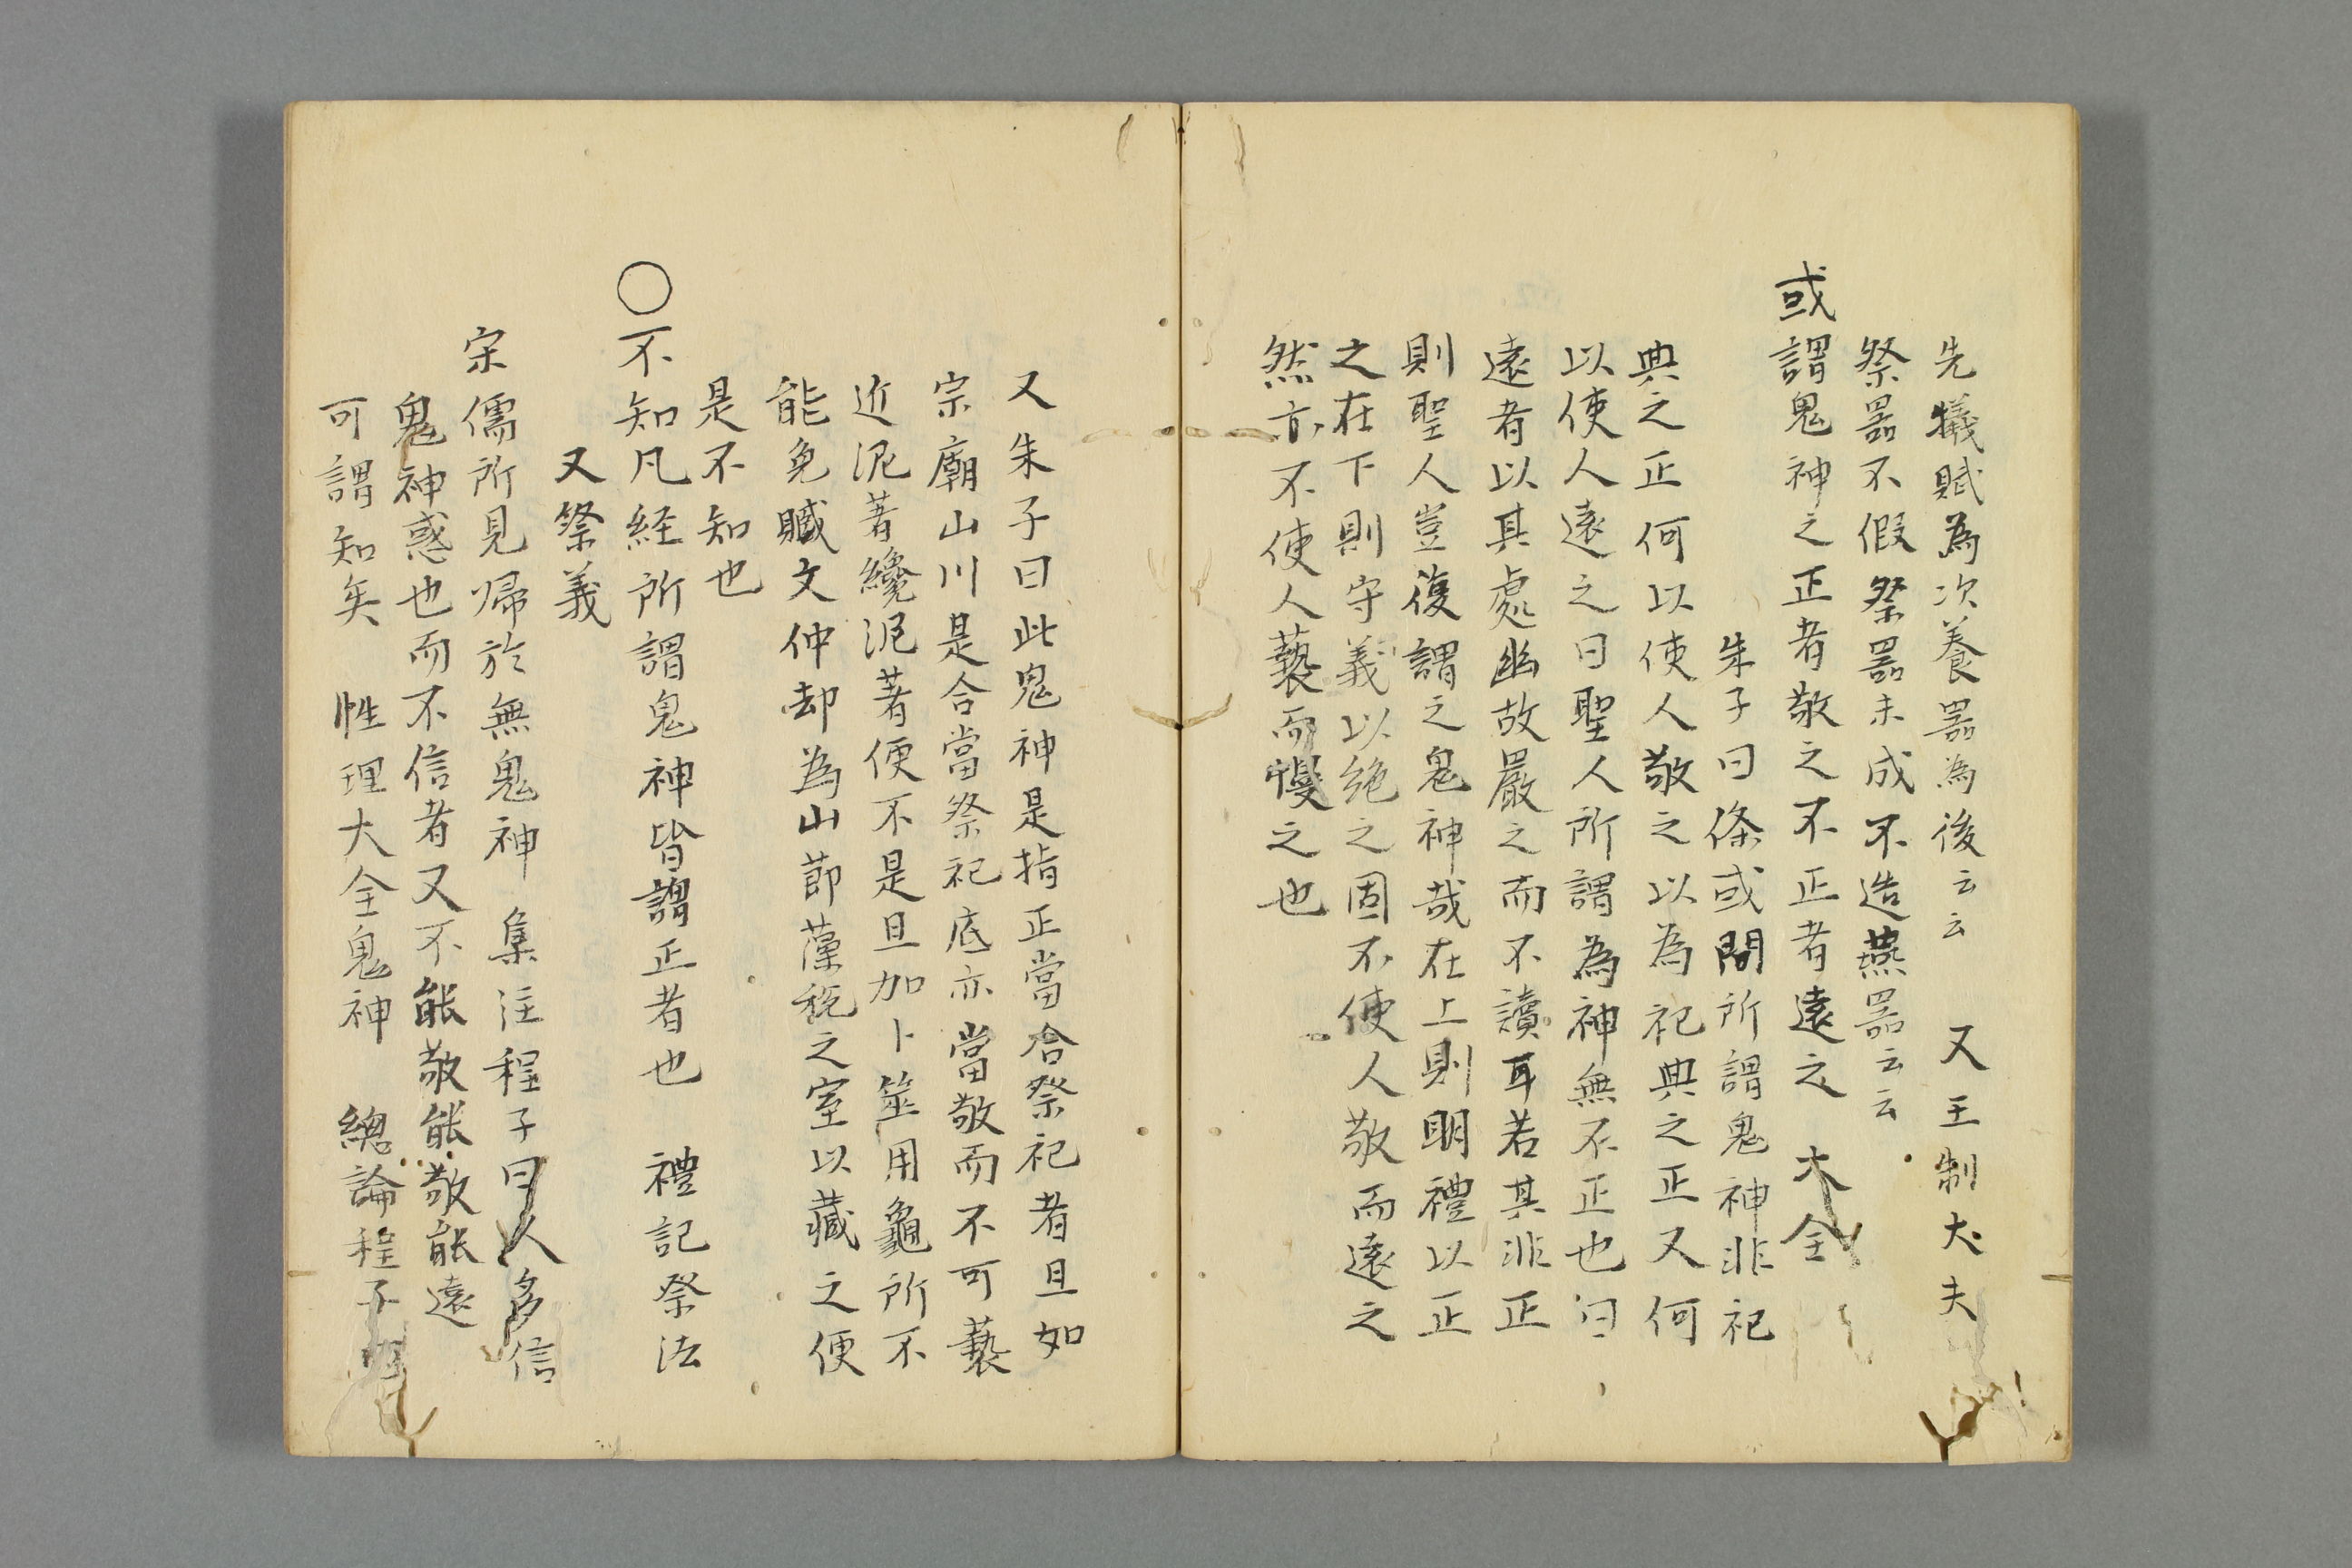 先犠賦為次養器為後云云　又王制大夫
祭器不假祭器未成不造燕器云云
或謂鬼神之正者敬之不正者遠之　大全
朱子曰條或問所謂鬼神非祀
典之正何以使人敬之以為祀典之正又何
以使人遠之曰聖人所謂為神無不正也曰
遠者以其處幽故嚴之而不瀆耳若其非正
則聖人豈復謂之鬼神哉在上則明禮以正
之在下則守義以絶之固不使人敬而遠之
然亦不使人褻而慢之也
又朱子曰此鬼神是指正當合祭祀者且如
宗廟山川是合當祭祀底亦當敬而不可褻
近泥著纔泥著便不是且加卜筮用龜所不
能免臧文仲却為山節藻梲之室以藏之便
是不知也
〇不知凡経所謂鬼神皆謂正者也　禮記祭法
又祭義
宋儒所見帰於無鬼神　集注程子曰人多信
鬼神惑也而不信者又不能敬能敬能遠
可謂知矣　性理大全鬼神　總論程子